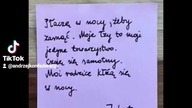 Płaczę w nocy, żeby
zasnąć. Moje łzy to moje
jedyne towarzystwo.
Czuję się samotny.
Moi rodzice kłócą się
w nocy.
TikTok